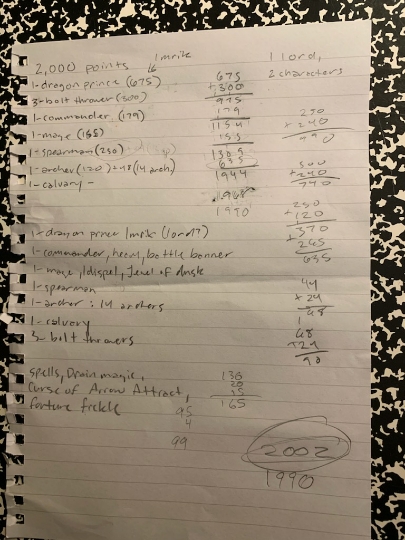 2,000 points 1 mrik
16
1 lord,
2 characters
1-dragon prince (675)
3-bolt thrower (300)
1-commander (179)
1-mage (155)
1-spearman (250)
1-archer (120) + 48 (14 arch)
1-calvary -
675
+300
975
179
1154
155
1309
635
1944
1968
1990
250
+240
500
+240
740
250
+120
+370
265
635
44
+24
68
68
+24
1-dragon prince 1mrik (lord?)
1-commander, heavy, battle banner
1-mage, 1dispel, Jewel of dusk
1-spearman
1-archer : 14 archers
1-calvory
3-bolt throwers
spells, Drain magic,
Curse of Arrow Attract,
fortune fickle
130
20
15
165
95
4
99
2002
1990